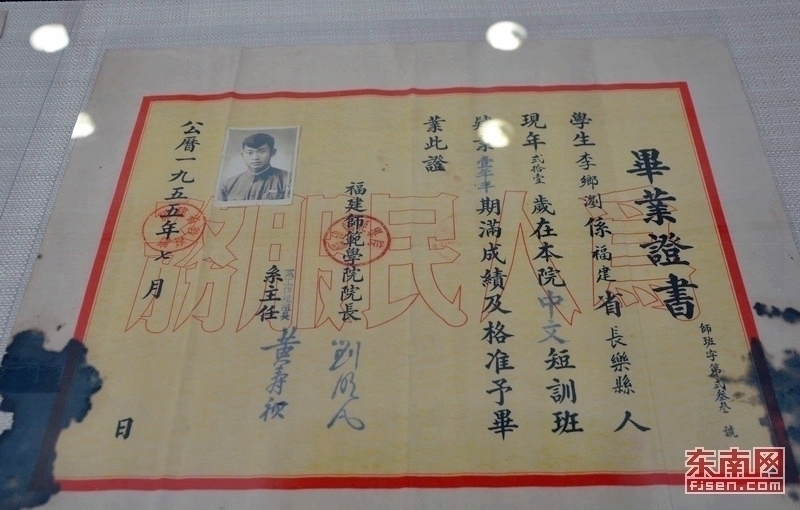 畢業證書
師班字第弐叁叁號
學生李鄉瀏係福建省長樂縣人
現年弐拾壹歲在本院中文短訓班
肄業壹年半期滿成績及格准予畢
業此證
福建師範學院院長
系主任
公曆一九五五年七月 日
為人民服務
东南网
fjsen.com